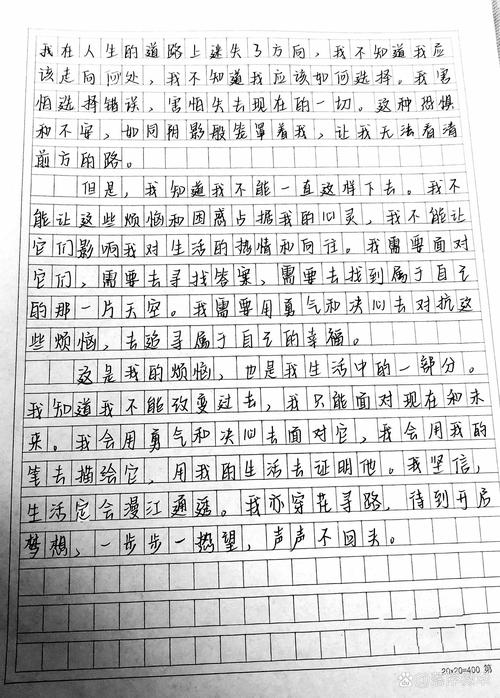 我在人生的道路上迷失了方向，我不知道我应
该走向何处，我不知道我应该如何选择。我害
怕选择错误，害怕失去现在的一切。这种恐惧
和不安，如同阴影般笼罩着我，让我无法看清
前方的路。
但是，我知道我不能一直这样下去。我不
能让这些烦恼和困惑占据我的心灵，我不能让
它们影响我对生活的热情和向往。我需要面对
它们，需要去寻找答案，需要去找到属于自己
的那一片天空。我需要用勇气和决心去对抗这
些烦恼，去追寻属于自己的幸福。
这是我的烦恼，也是我生活中的一部分。
我知道我不能改变过去，我只能面对现在和未
来。我会用勇气和决心去面对它，我会用我的
笔去描绘它，用我的生活去证明他。我坚信，
生活定会漫江通遥。我亦穿花寻路，待到开启
梦想，一步步一热望，声声不回头。
20×20=400 第